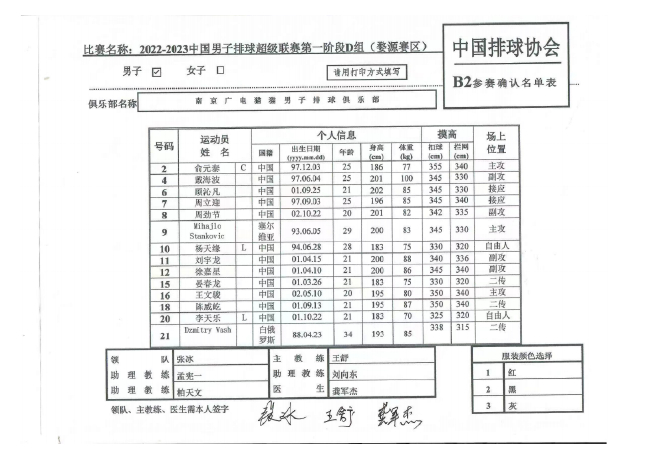 比赛名称：2022-2023中国男子排球超级联赛第一阶段D组（婺源赛区）
中国排球协会
B2参赛确认名单表
男子 ☑ 女子 □
请用打印方式填写
俱乐部名称 南京广电猫猫男子排球俱乐部
号码 运动员姓名 个人信息 摸高 场上位置
国籍 出生日期(yyyy.mm.dd) 年龄 身高(cm) 体重(kg) 扣球(cm) 拦网(cm)
2 俞元泰 C 中国 97.12.03 25 186 77 355 340 主攻
4 戴海波 中国 97.06.04 25 201 100 345 330 副攻
6 顾沁凡 中国 01.09.25 21 202 85 345 330 接应
7 周立迎 中国 97.09.03 25 196 85 345 340 接应
8 周劲节 中国 02.10.22 20 201 82 342 335 副攻
9 Mihajlo Stankovic 塞尔维亚 93.06.05 29 200 83 345 330 主攻
10 杨天缘 L 中国 94.06.28 28 183 75 330 320 自由人
11 刘宇龙 中国 01.04.15 21 200 88 340 336 副攻
12 徐嘉星 中国 01.04.10 21 200 86 345 340 副攻
15 晏春龙 中国 01.03.26 21 183 75 330 320 二传
16 王文骏 中国 02.05.10 20 195 80 350 340 主攻
18 陈威屹 中国 01.09.13 21 195 87 350 340 二传
20 李天乐 L 中国 01.10.22 21 183 70 325 320 自由人
21 Dzmitry Vash 白俄罗斯 88.04.23 34 193 85 338 315 二传
领队 张冰 主教练 王舒 服装颜色选择
助理教练 孟宪一 助理教练 刘向东 1 红
助理教练 柏天文 医生 龚军杰 2 黑
3 灰
领队、主教练、医生需本人签字 张冰 王舒 龚军杰